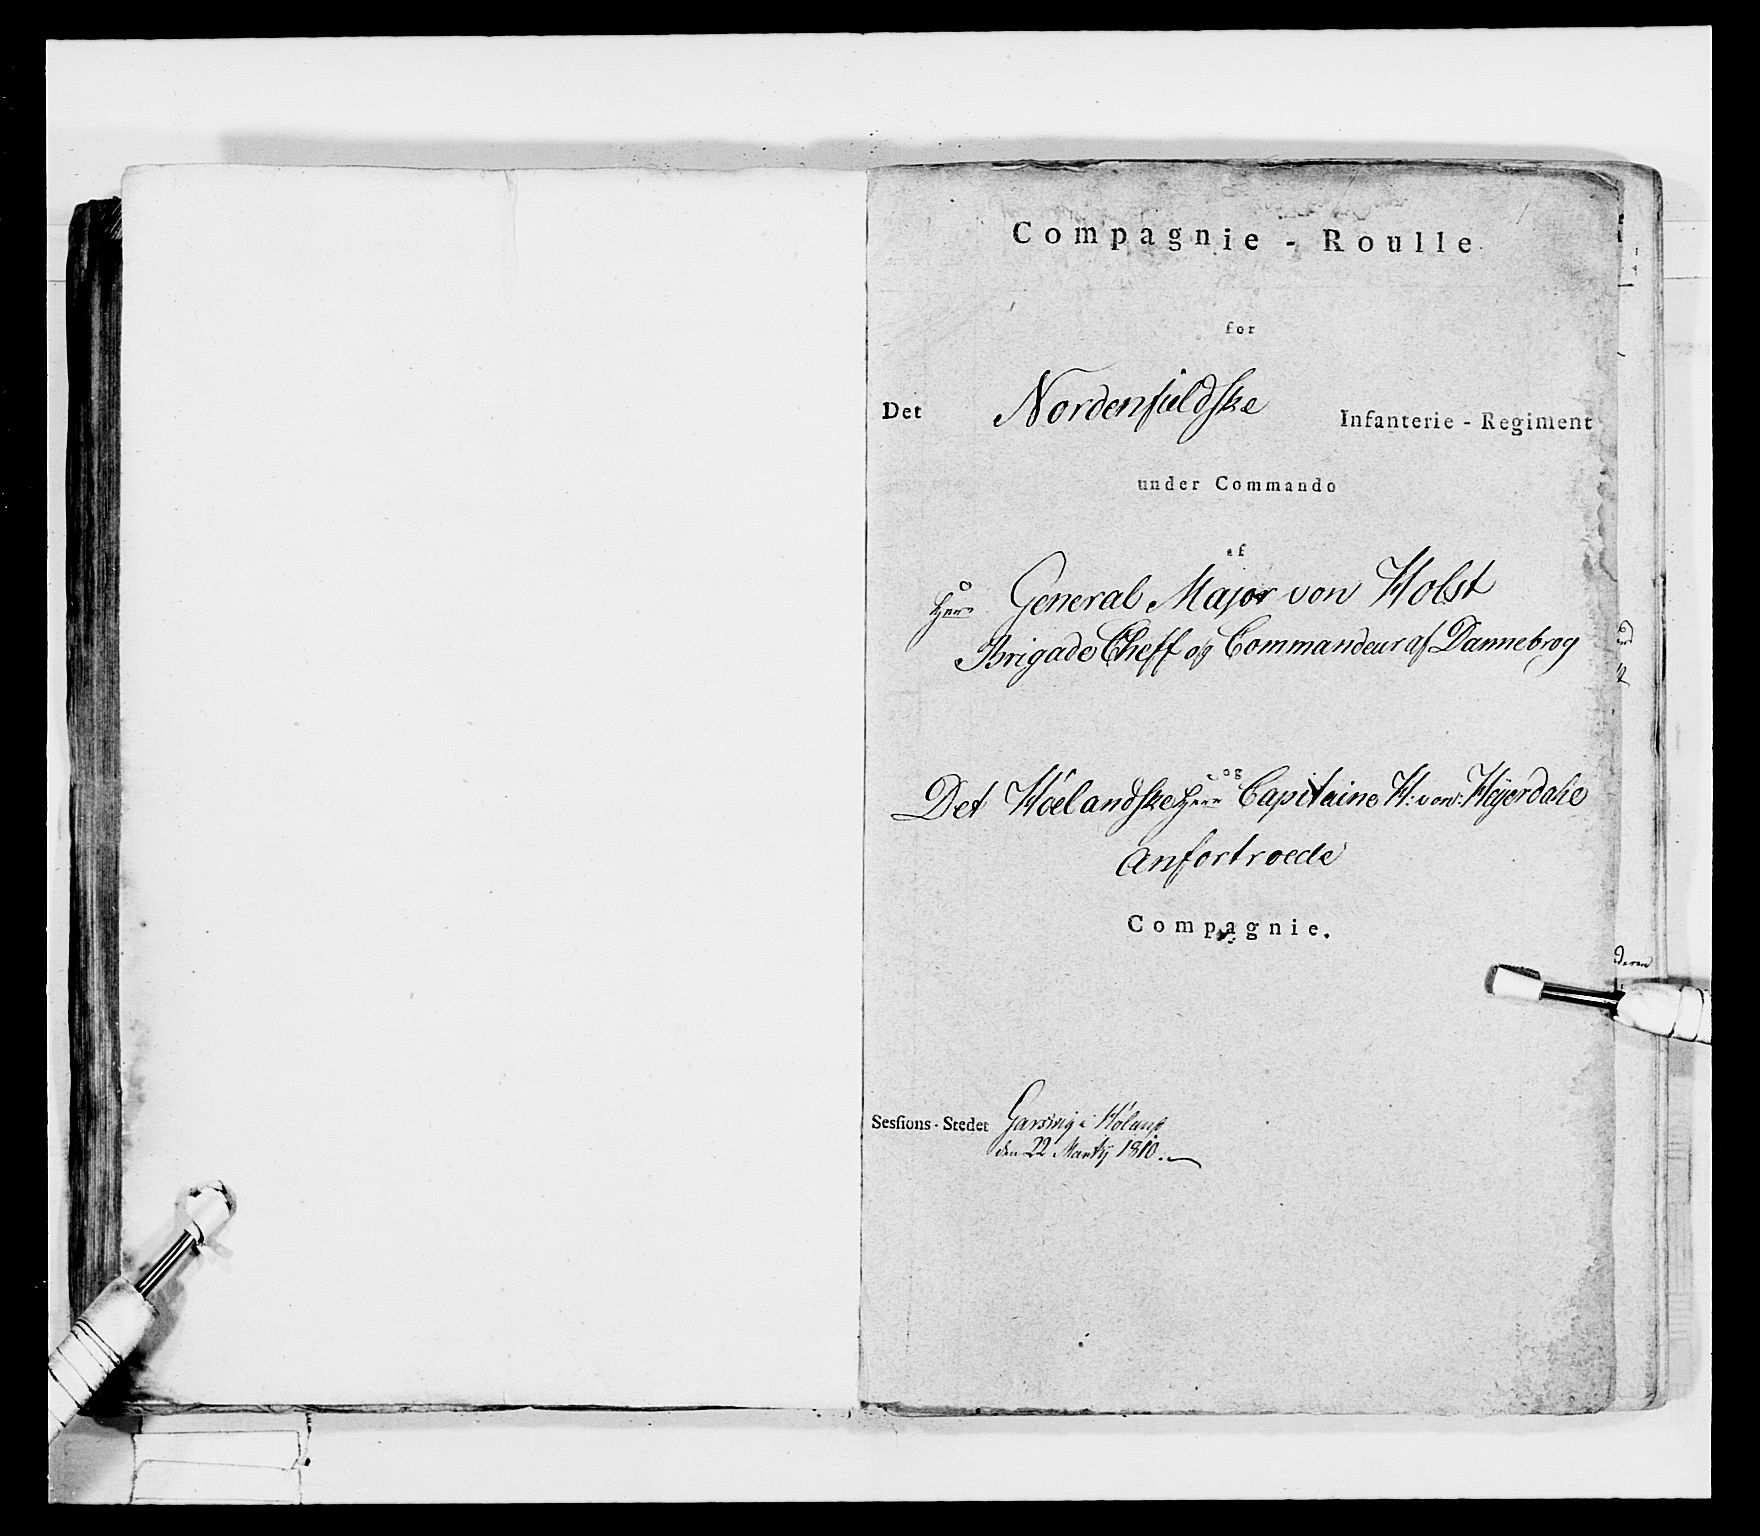 Compagnie - Roulle
for
Det Nordenfieldske Infanterie - Regiment
under Commando
af
Herr General Major von Holst
Brigade Cheff og Commandeur af Dannebrog
og
Det Hoelandske Herr Capitaine H: von: Heyerdahl
Anfortroede
Compagnie.
Sessions - Stedet Garsvig i Höland
den 22 Martÿ 1810.